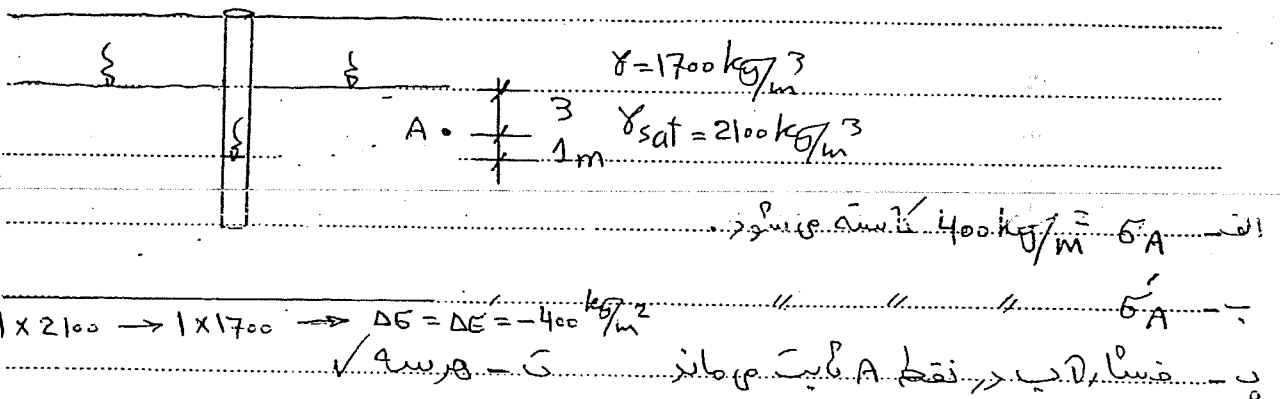 γ=1700 kg/m3
3
A . γsat = 2100 kg/m3
1m
الف - σA 400 kg/m2 کاسته می شود.
ب - σ'A " " "
1 x 2100 → 1 x 1700 → Δσ = Δσ' = -400 kg/m2
پ - فشار آب در نقطه A ثابت می ماند ت - هر سه ✓